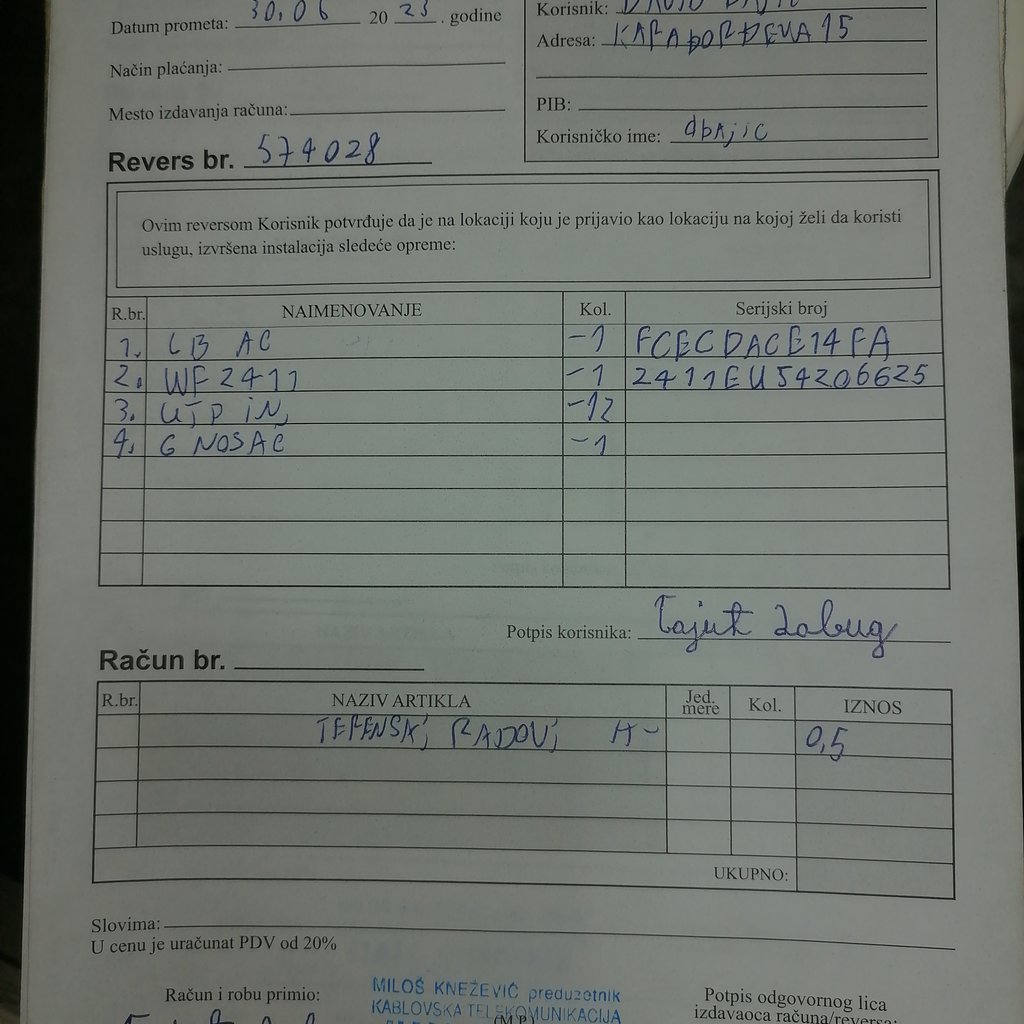 Datum prometa: 30.06 2023. godine
Korisnik:
Adresa: KARAĐORĐEVA 15
Način plaćanja:
Mesto izdavanja računa:
PIB:
Korisničko ime: dbAjic
Revers br. 574028
Ovim reversom Korisnik potvrđuje da je na lokaciji koju je prijavio kao lokaciju na kojoj želi da koristi
uslugu, izvršena instalacija sledeće opreme:
R.br. NAIMENOVANJE Kol. Serijski broj
1. LB AC -1 FCECDACE14FA
2. WF2411 -1 2411EU54206625
3. UTP IN, -12
4. G NOSAČ -1
Potpis korisnika:
Račun br.
R.br. NAZIV ARTIKLA Jed. mere Kol. IZNOS
TERENSKI RADOVI H- 0,5
UKUPNO:
Slovima:
U cenu je uračunat PDV od 20%
Račun i robu primio:
MILOŠ KNEŽEVIĆ preduzetnik
KABLOVSKA TELEKOMUNIKACIJA
(M.P.)
Potpis odgovornog lica
izdavaoca računa/reversa: